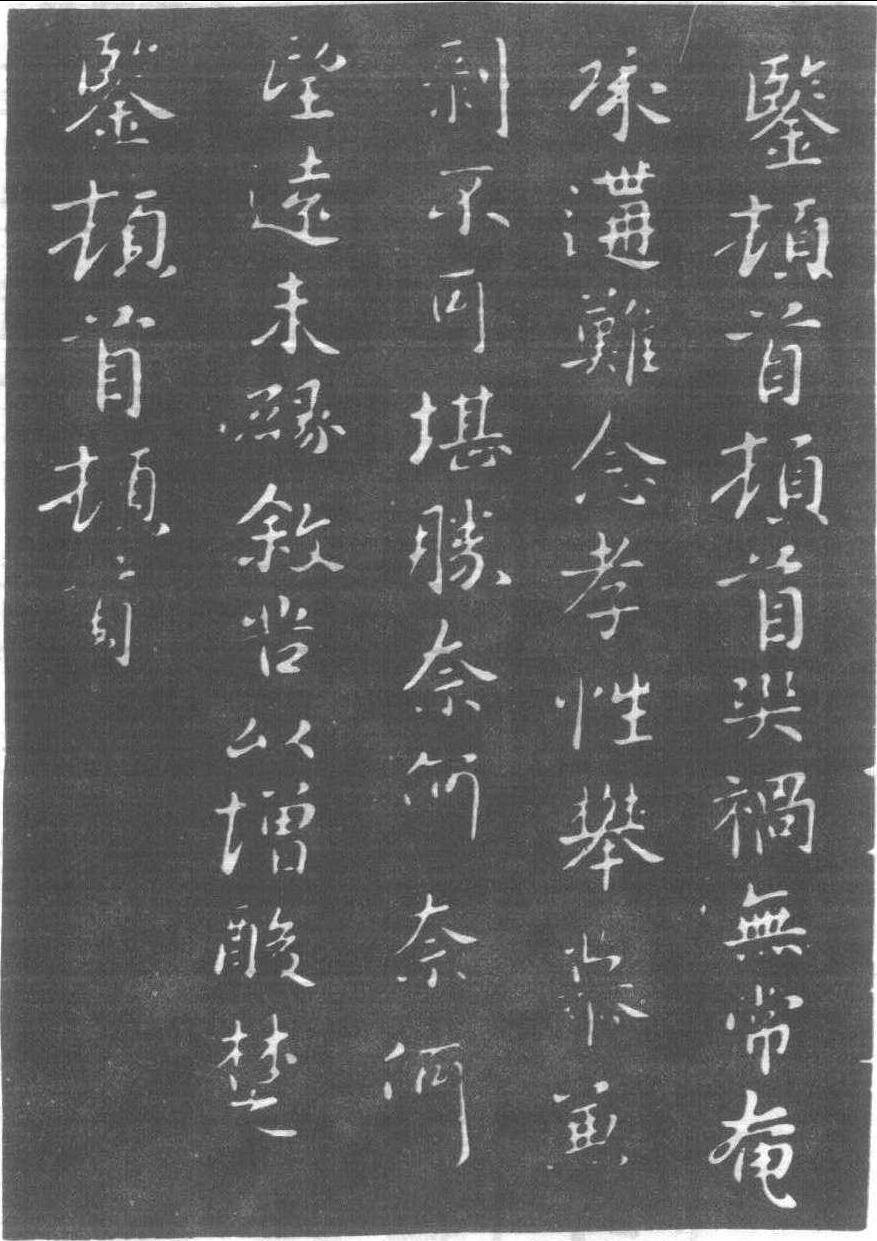 鑒頓首頓首災禍無常奄
承遘難念孝性攀慕兼
剥不可堪勝奈何奈何
望遠未緣敘苦以增酸楚
鑒頓首頓首